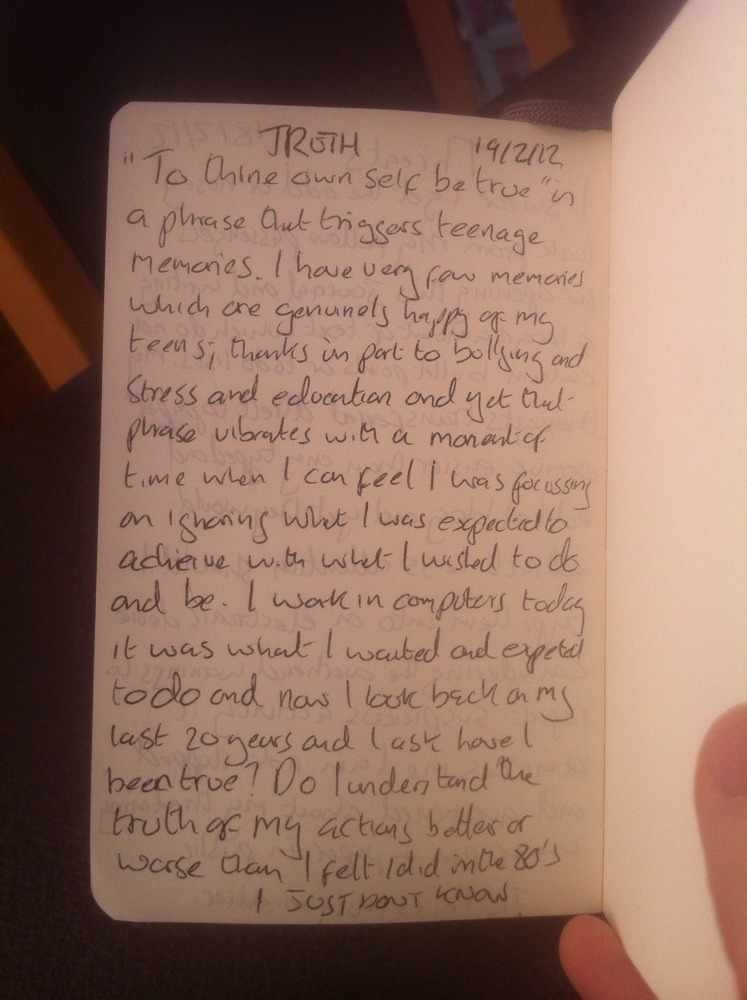 TRUTH 19/2/12
"To thine own self be true" is
a phrase that triggers teenage
memories. I have very few memories
which are genuinely happy of my
teens; thanks in part to bullying and
stress and education and yet that
phrase vibrates with a moment of
time when I can feel I was focussing
on ignoring what I was expected to
achieve with what I wished to do
and be. I work in computers today
it was what I wanted and expected
to do and now I look back on my
last 20 years and I ask have I
been true? Do I understand the
truth of my actions better or
worse than I felt I did in the 80's
I JUST DONT KNOW